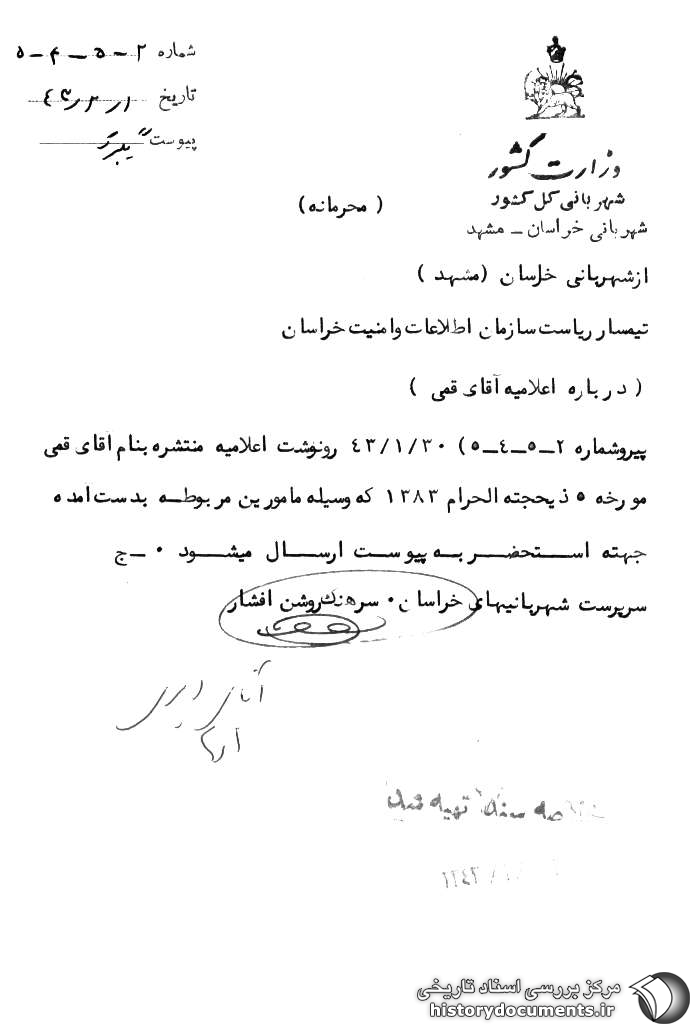 شماره ۲-۵-۴-۵
تاریخ ۴۳/۲/۱
پیوست یکبرگ
وزارت کشور
شهربانی کل کشور
شهربانی خراسان - مشهد
( محرمانه )
از شهربانی خراسان (مشهد )
تیمسار ریاست سازمان اطلاعات وامنیت خراسان
( درباره اعلامیه آقای قمی )
پیروشماره ۲-۵-٤-۵) ٤۳/۱/۳۰ رونوشت اعلامیه منتشره بنام آقای قمی
مورخه ۵ ذیحجته الحرام ۱۳۸۳ که وسیله مامورین مربوطه بدست امده
جهته استحضر به پیوست ارسال میشود ۰ -ج
سرپرست شهربانیهای خراسان۰ سرهنگ روشن افشار
آقای
تهیه شد
مرکز بررسی اسناد تاریخی
historydocuments.ir